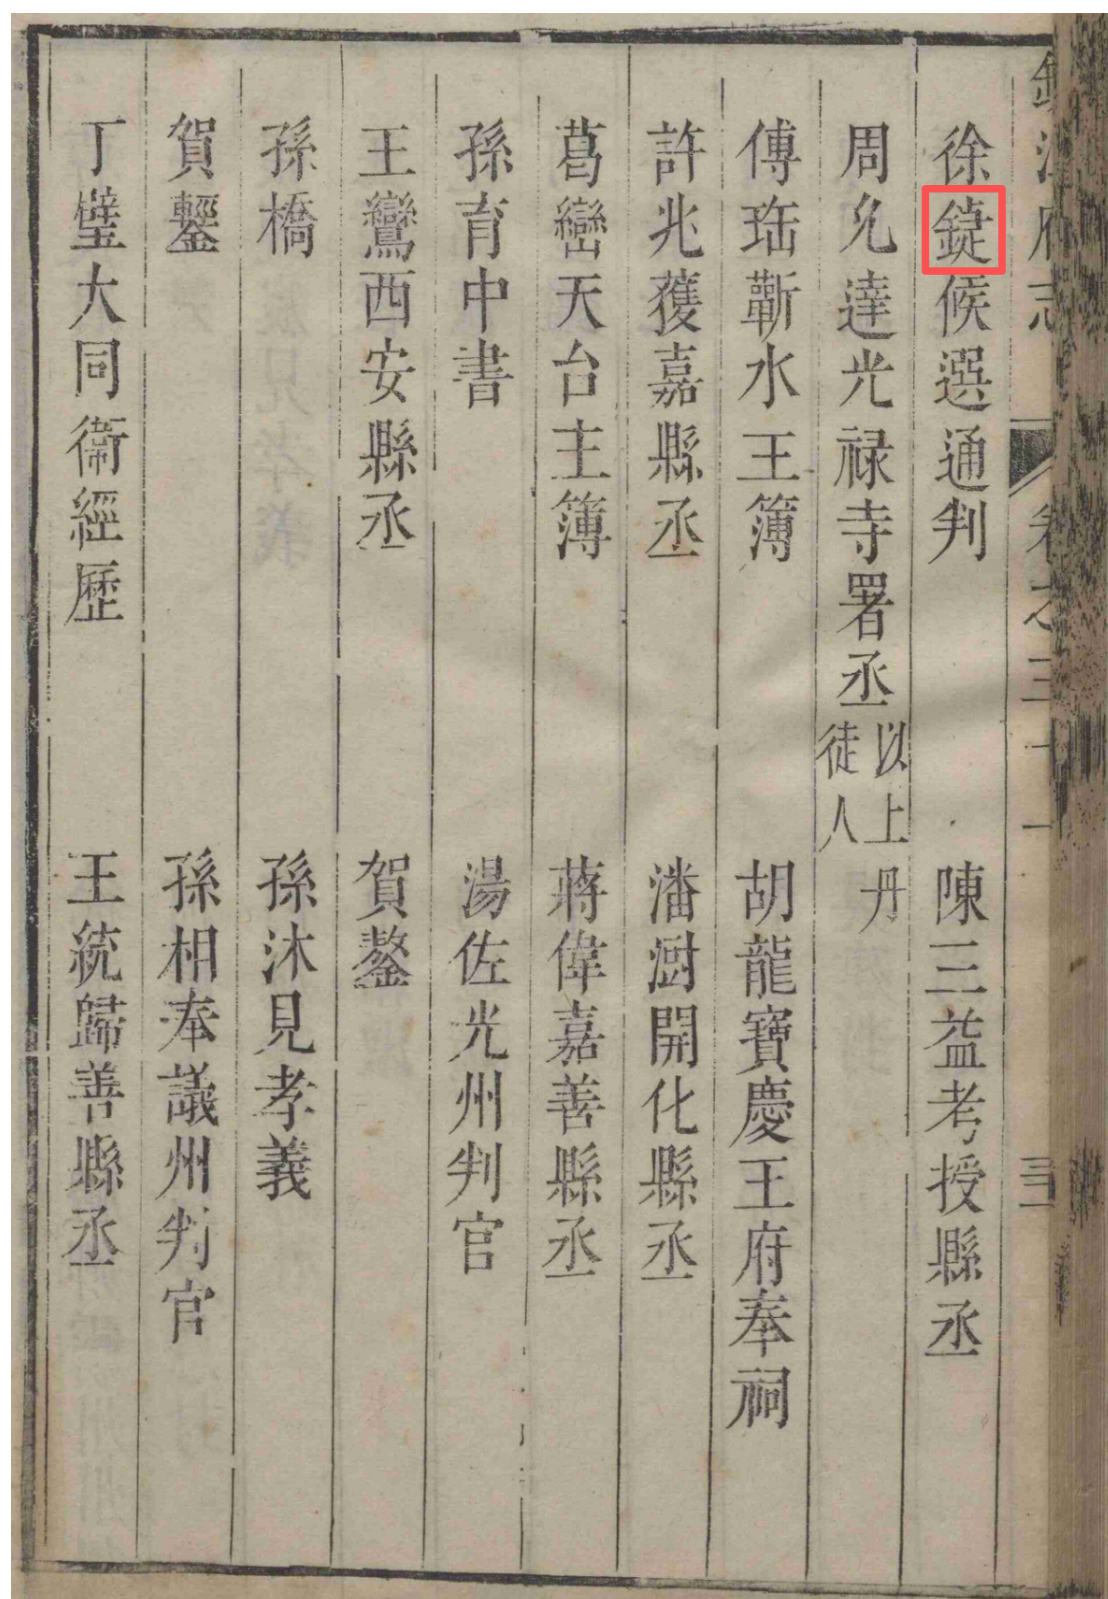 鎮江府志 卷之三十一
徐候選通判 陳三益考授縣丞
周允達光祿寺署丞以上丹徒人
傅珤蘄水王簿 胡龍寶慶王府奉祠
許兆獲嘉縣丞 潘澍開化縣丞
葛巒天台主簿 蔣偉嘉善縣丞
孫育中書 湯佐光州判官
王鸞西安縣丞 賀鏊
孫橋 孫沐見孝義
賀鑋 孫相奉議州判官
丁璧大同衛經歷 王統歸善縣丞